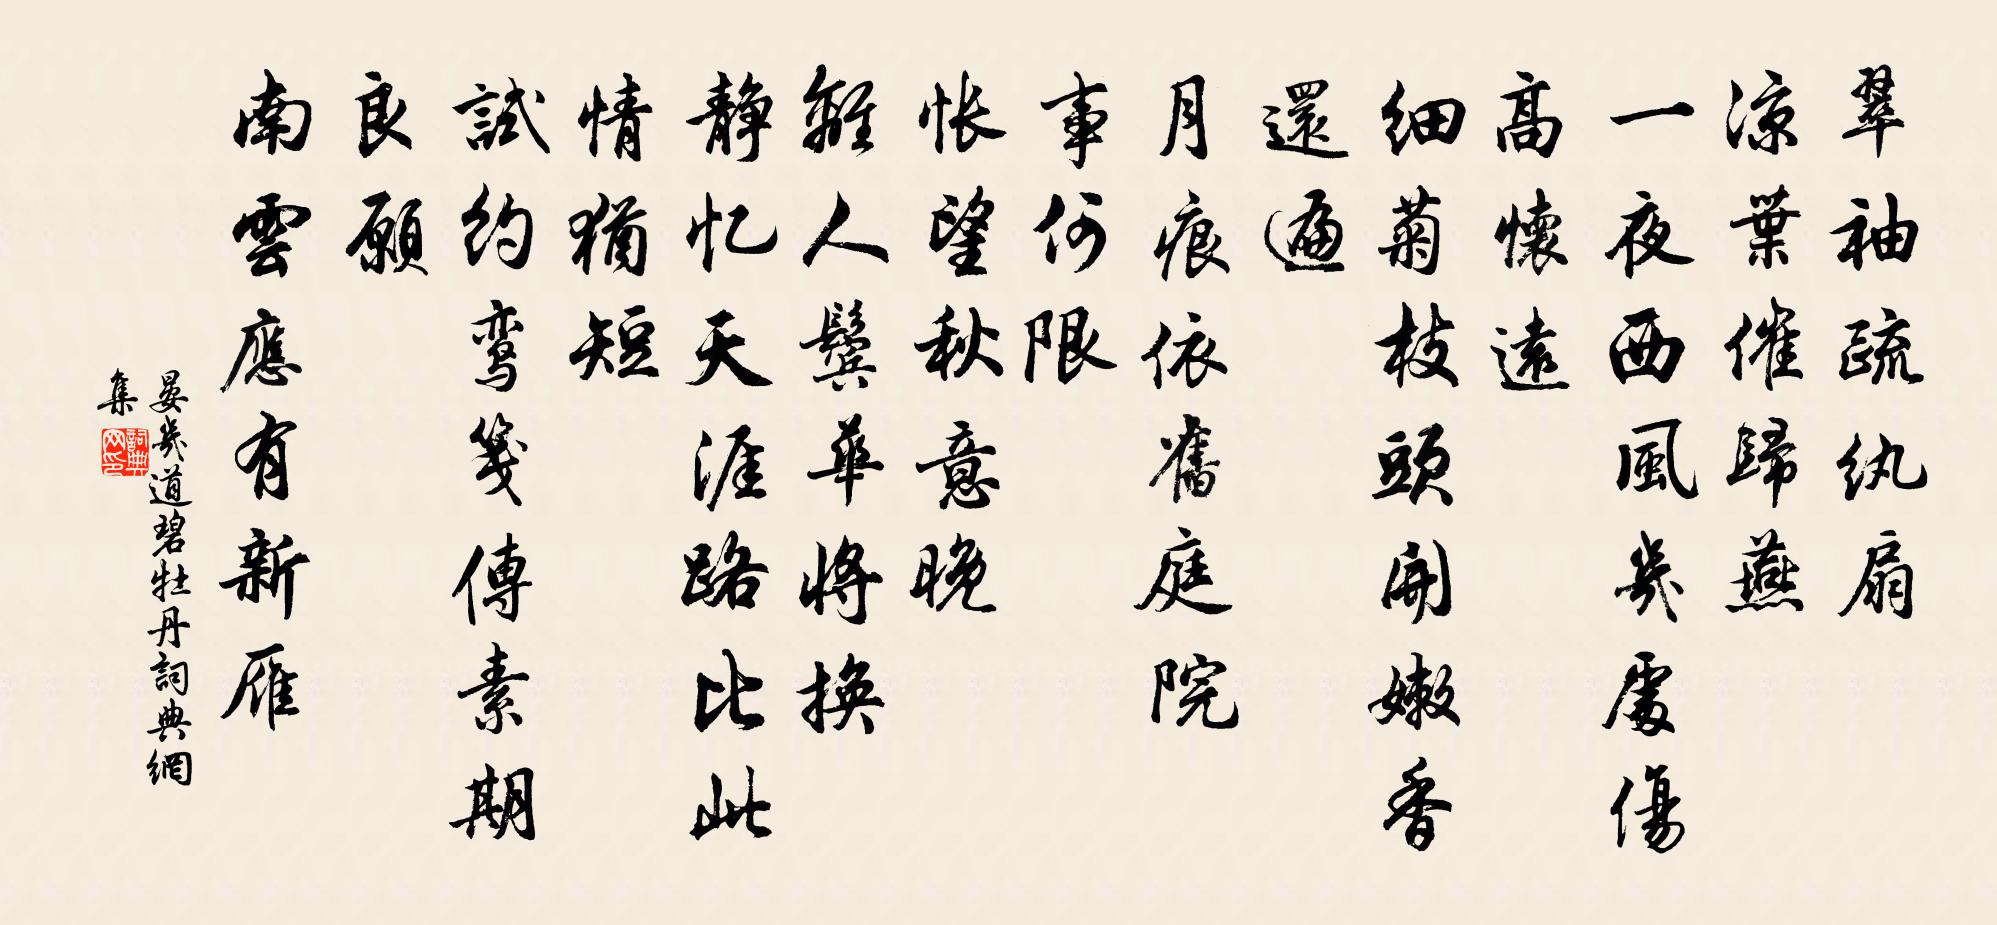 翠袖疏纨扇
凉葉催歸燕
一夜西風幾處傷
高懷遠
細菊枝頭開嫩香
還遍
月痕依舊庭院
事何限
悵望秋意晚
離人鬢華將換
靜忆天涯路比此
情猶短
試約鸾箋傳素期
良願
南雲應有新雁
晏幾道碧牡丹詞典網
集
詞典网印